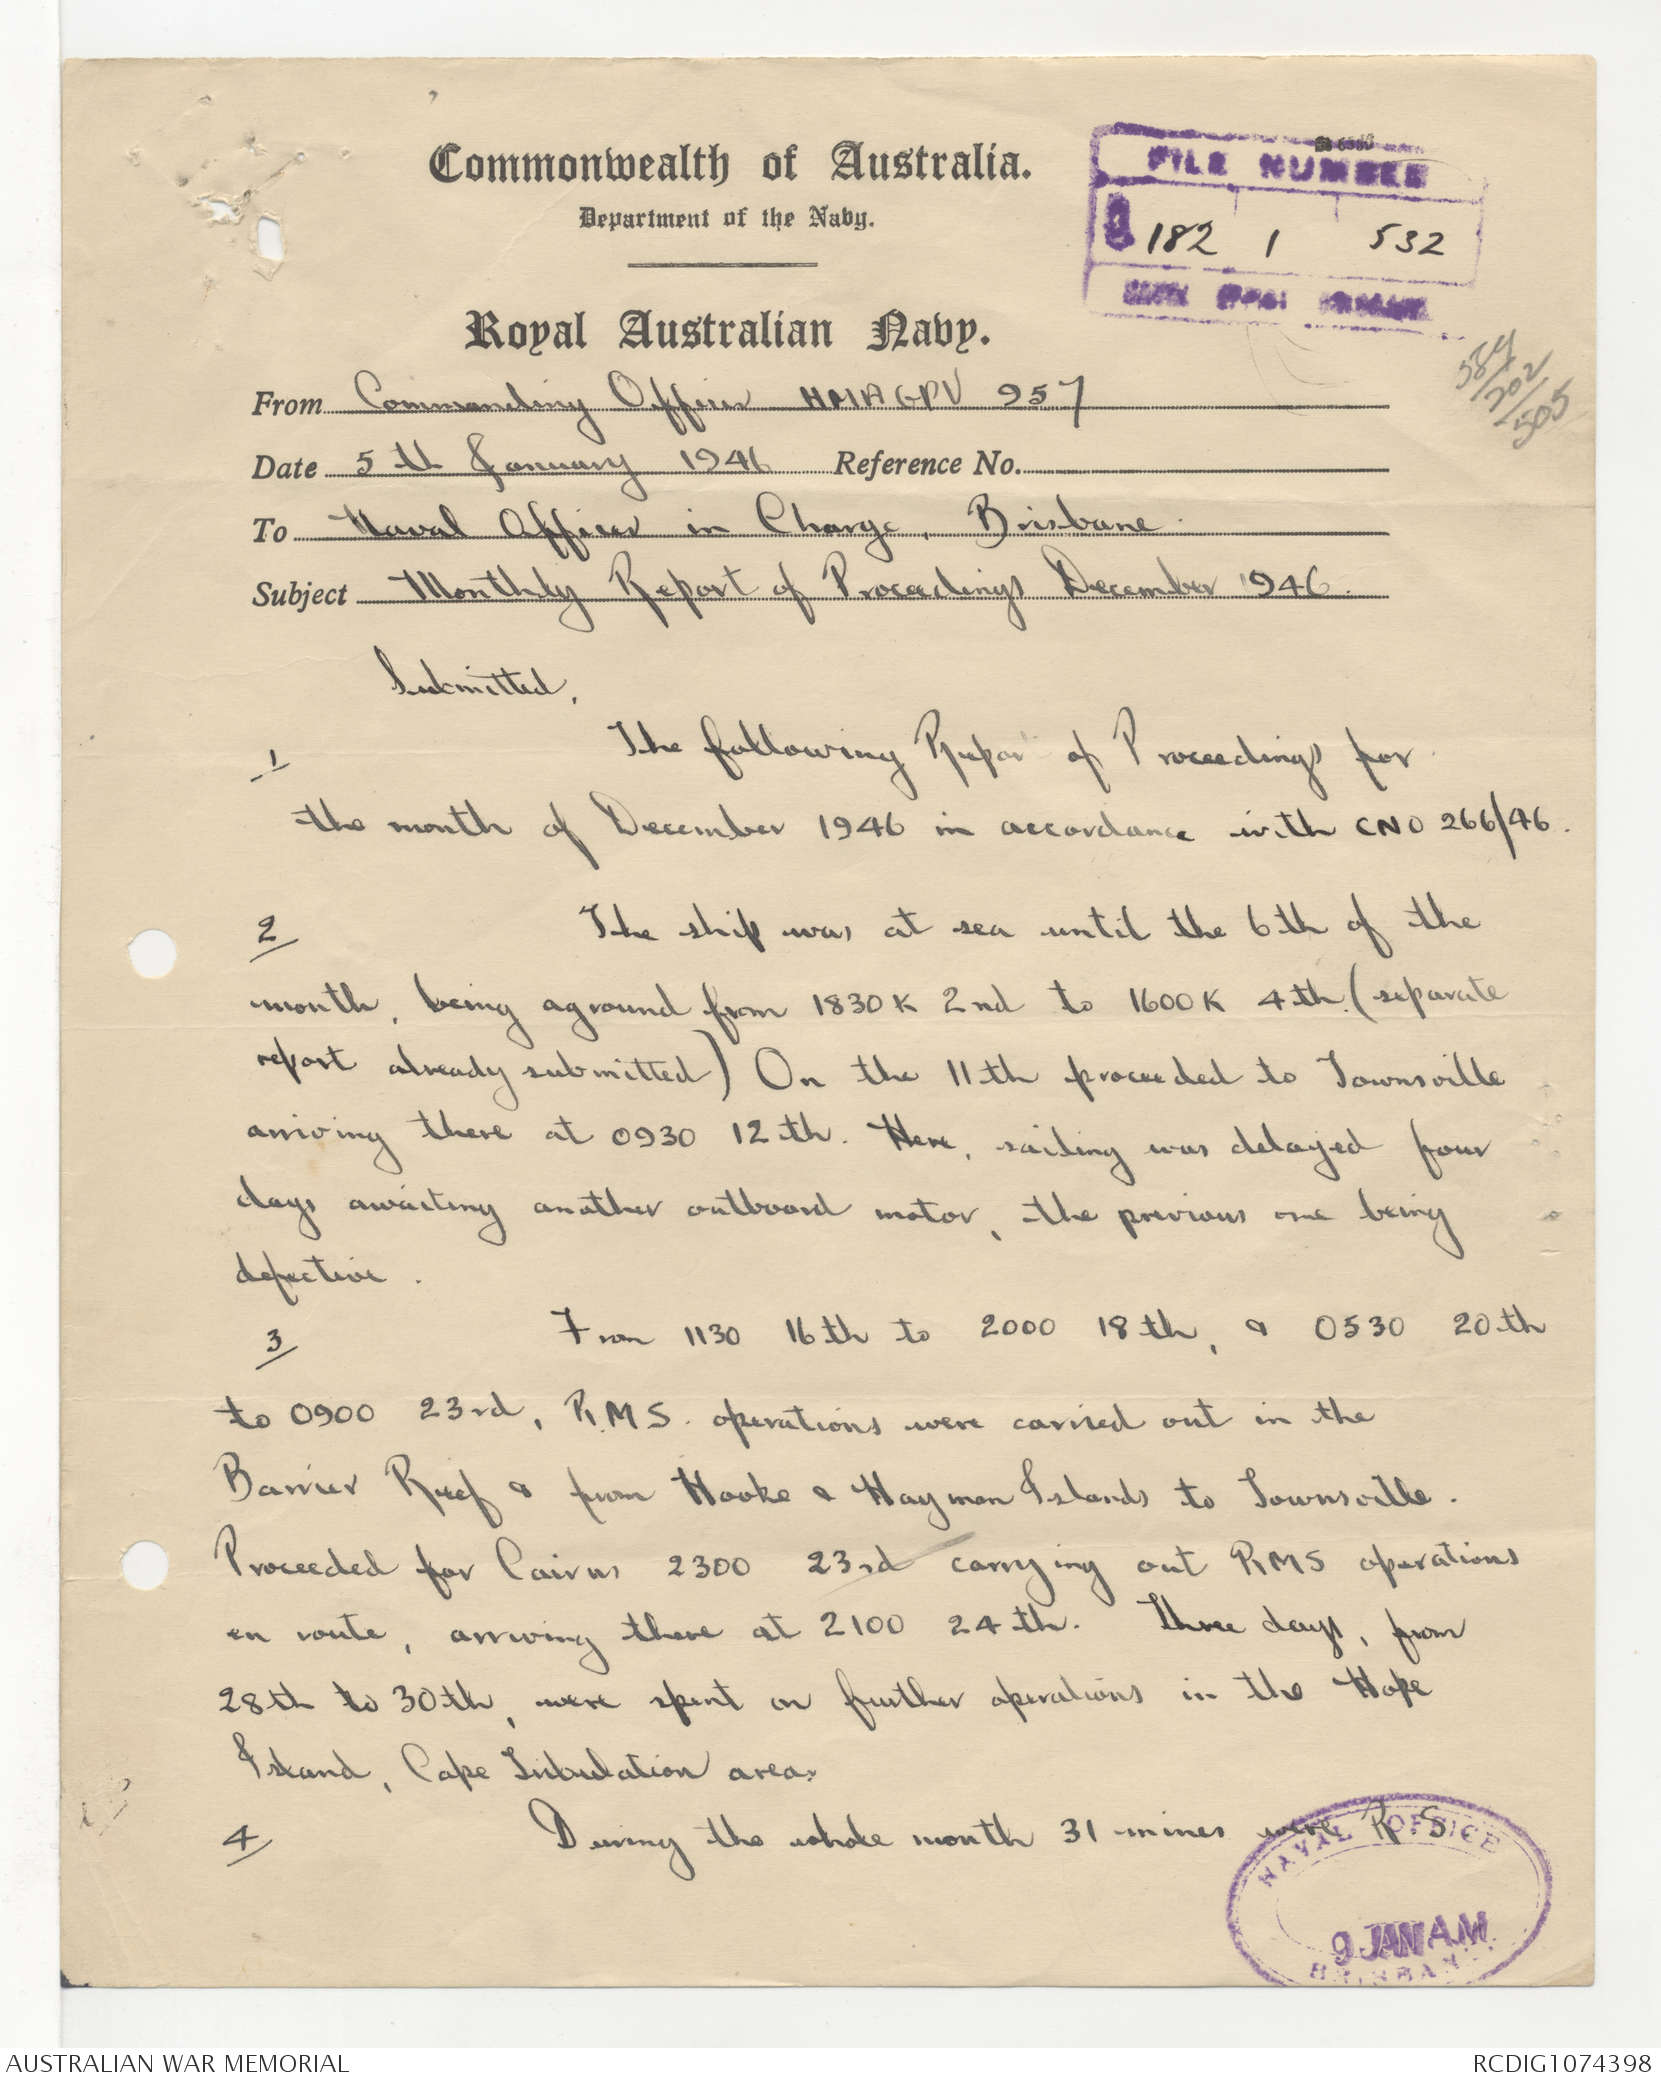 Commonwealth of Australia.
Department of the Navy.
FILE NUMBER
182 1 532
Royal Australian Navy.
589/202/505
From Commanding Officer HMAGPV 957
Date 5th January 1946 Reference No.
To Naval Officer in Charge, Brisbane.
Subject Monthly Report of Proceedings December 1946.
Submitted,
1 The following Repor of Proceedings for
the month of December 1946 in accordance with CNO 266/46.
2 The ship was at sea until the 6th of the
month, being aground from 1830K 2nd to 1600K 4th. (separate
report already submitted) On the 11th proceeded to Townsville
arriving there at 0930 12th. Here, sailing was delayed four
days awaiting another outboard motor, the previous one being
defective.
3 From 1130 16th to 2000 18th, & 0530 20th
to 0900 23rd, R.M.S. operations were carried out in the
Barrier Reef & from Hooke & Hayman Islands to Townsville.
Proceeded for Cairns 2300 23rd carrying out RMS operations
en route, arriving there at 2100 24th. Three days, from
28th to 30th, were spent on further operations in the Hope
Island, Cape Tribulation area.
4 During the whole month 31 mines were R.S.
NAVAL OFFICE
9 JAN A.M
BRISBANE
AUSTRALIAN WAR MEMORIAL
RCDIG1074398